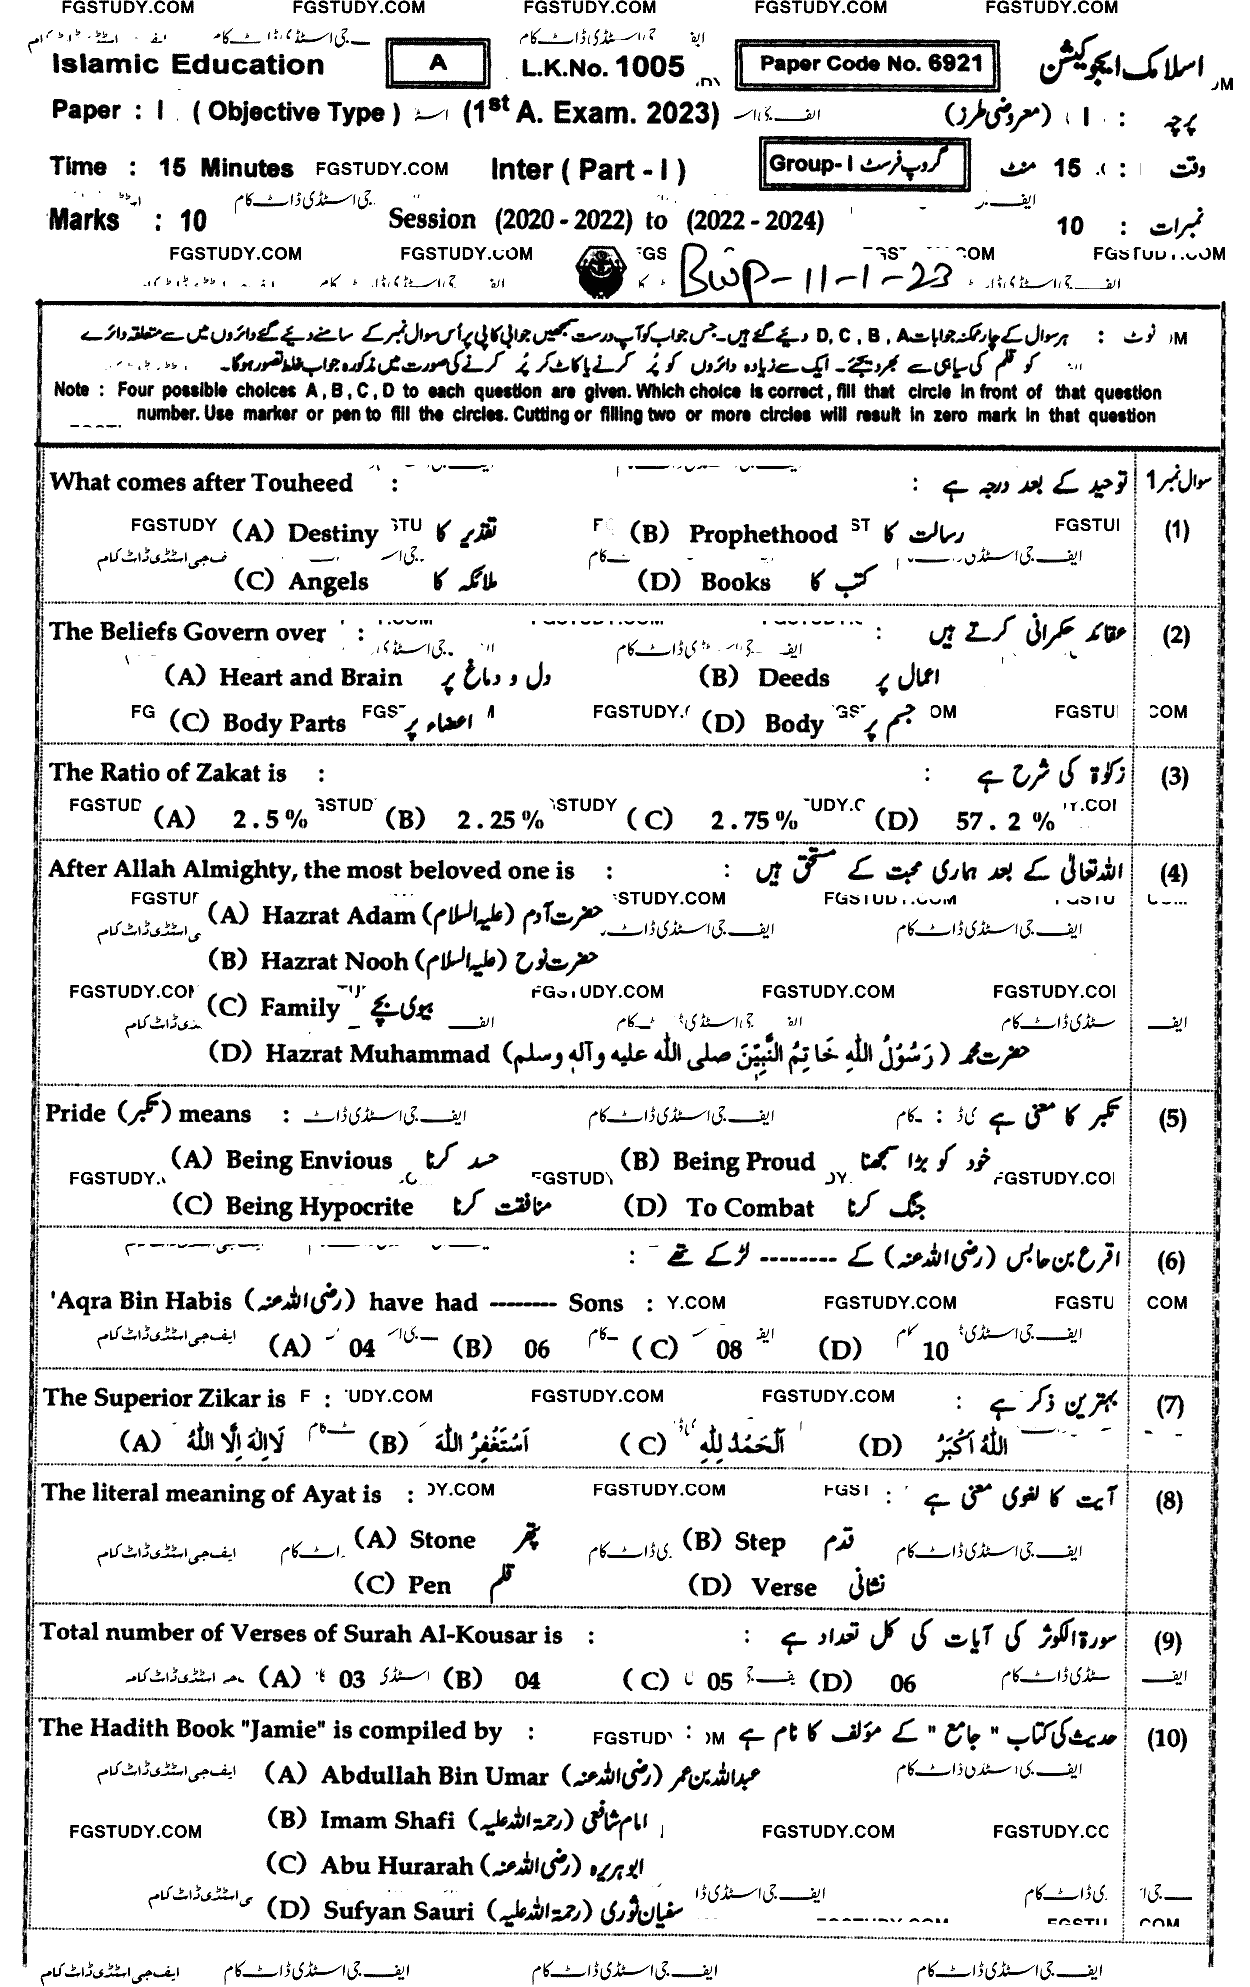 FGSTUDY.COM FGSTUDY.COM FGSTUDY.COM FGSTUDY.COM FGSTUDY.COM
Islamic Education A L.K.No. 1005 Paper Code No. 6921 اسلامک ایجوکیشن
Paper : I ( Objective Type ) (1st A. Exam. 2023) پرچہ : I ( معروضی طرز )
Time : 15 Minutes FGSTUDY.COM Inter ( Part - I ) Group- I گروپ فرسٹ وقت : 15 منٹ
Marks : 10 Session (2020 - 2022) to (2022 - 2024) نمبرات : 10
FGSTUDY.COM FGSTUDY.COM FGSTUDY.COM
BWP-11-1-23
نوٹ : ہر سوال کے چار ممکنہ جوابات D , C , B , A دیئے گئے ہیں۔ جس جواب کو آپ درست سمجھیں جوابی کاپی پر اُس سوال نمبر کے سامنے دیئے گئے دائروں میں سے متعلقہ دائرے
کو قلم کی سیاہی سے بھر دیجئے۔ ایک سے زیادہ دائروں کو پُر کرنے یا کاٹ کر پُر کرنے کی صورت میں مذکورہ جواب غلط تصور ہوگا۔
Note : Four possible choices A , B , C , D to each question are given. Which choice is correct , fill that circle in front of that question
number. Use marker or pen to fill the circles. Cutting or filling two or more circles will result in zero mark in that question
What comes after Touheed : توحید کے بعد درجہ ہے : سوال نمبر 1
(A) Destiny تقدیر کا (B) Prophethood رسالت کا (1)
(C) Angels ملائکہ کا (D) Books کتب کا
The Beliefs Govern over : عقائد حکمرانی کرتے ہیں : (2)
(A) Heart and Brain دل و دماغ پر (B) Deeds اعمال پر
(C) Body Parts اعضاء پر (D) Body جسم پر
The Ratio of Zakat is : زکوٰۃ کی شرح ہے : (3)
(A) 2.5% (B) 2.25% (C) 2.75% (D) 57.2%
After Allah Almighty, the most beloved one is : اللہ تعالیٰ کے بعد ہماری محبت کے مستحق ہیں : (4)
(A) Hazrat Adam (علیہ السلام) حضرت آدم
(B) Hazrat Nooh (علیہ السلام) حضرت نوح
(C) Family بیوی بچے
(D) Hazrat Muhammad (رَسُوْلُ اللهِ خَاتِمُ النَّبِيّٖنَ صلى الله عليه وآله وسلم) حضرت محمد
Pride (تکبر) means : تکبر کا معنی ہے : (5)
(A) Being Envious حسد کرنا (B) Being Proud خود کو بڑا سمجھنا
(C) Being Hypocrite منافقت کرنا (D) To Combat جنگ کرنا
اقرع بن حابس (رضی اللہ عنہ) کے -------- لڑکے تھے : (6)
'Aqra Bin Habis (رضی اللہ عنہ) have had -------- Sons :
(A) 04 (B) 06 (C) 08 (D) 10
The Superior Zikar is : بہترین ذکر ہے : (7)
(A) لَا اِلٰهَ اِلَّا اللهُ (B) اَسْتَغْفِرُ اللهَ (C) اَلْحَمْدُ لِلّٰهِ (D) اَللهُ اَكْبَرُ
The literal meaning of Ayat is : آیت کا لغوی معنی ہے : (8)
(A) Stone پتھر (B) Step قدم
(C) Pen قلم (D) Verse نشانی
Total number of Verses of Surah Al-Kousar is : سورۃ الکوثر کی آیات کی کل تعداد ہے : (9)
(A) 03 (B) 04 (C) 05 (D) 06
The Hadith Book "Jamie" is compiled by : حدیث کی کتاب " جامع " کے مؤلف کا نام ہے : (10)
(A) Abdullah Bin Umar (رضی اللہ عنہ) عبداللہ بن عمر
(B) Imam Shafi (رحمۃ اللہ علیہ) امام شافعی
FGSTUDY.COM FGSTUDY.COM
(C) Abu Hurarah (رضی اللہ عنہ) ابوہریرہ
(D) Sufyan Sauri (رحمۃ اللہ علیہ) سفیان ثوری
ایف جی اسٹڈی ڈاٹ کام ایف جی اسٹڈی ڈاٹ کام ایف جی اسٹڈی ڈاٹ کام ایف جی اسٹڈی ڈاٹ کام